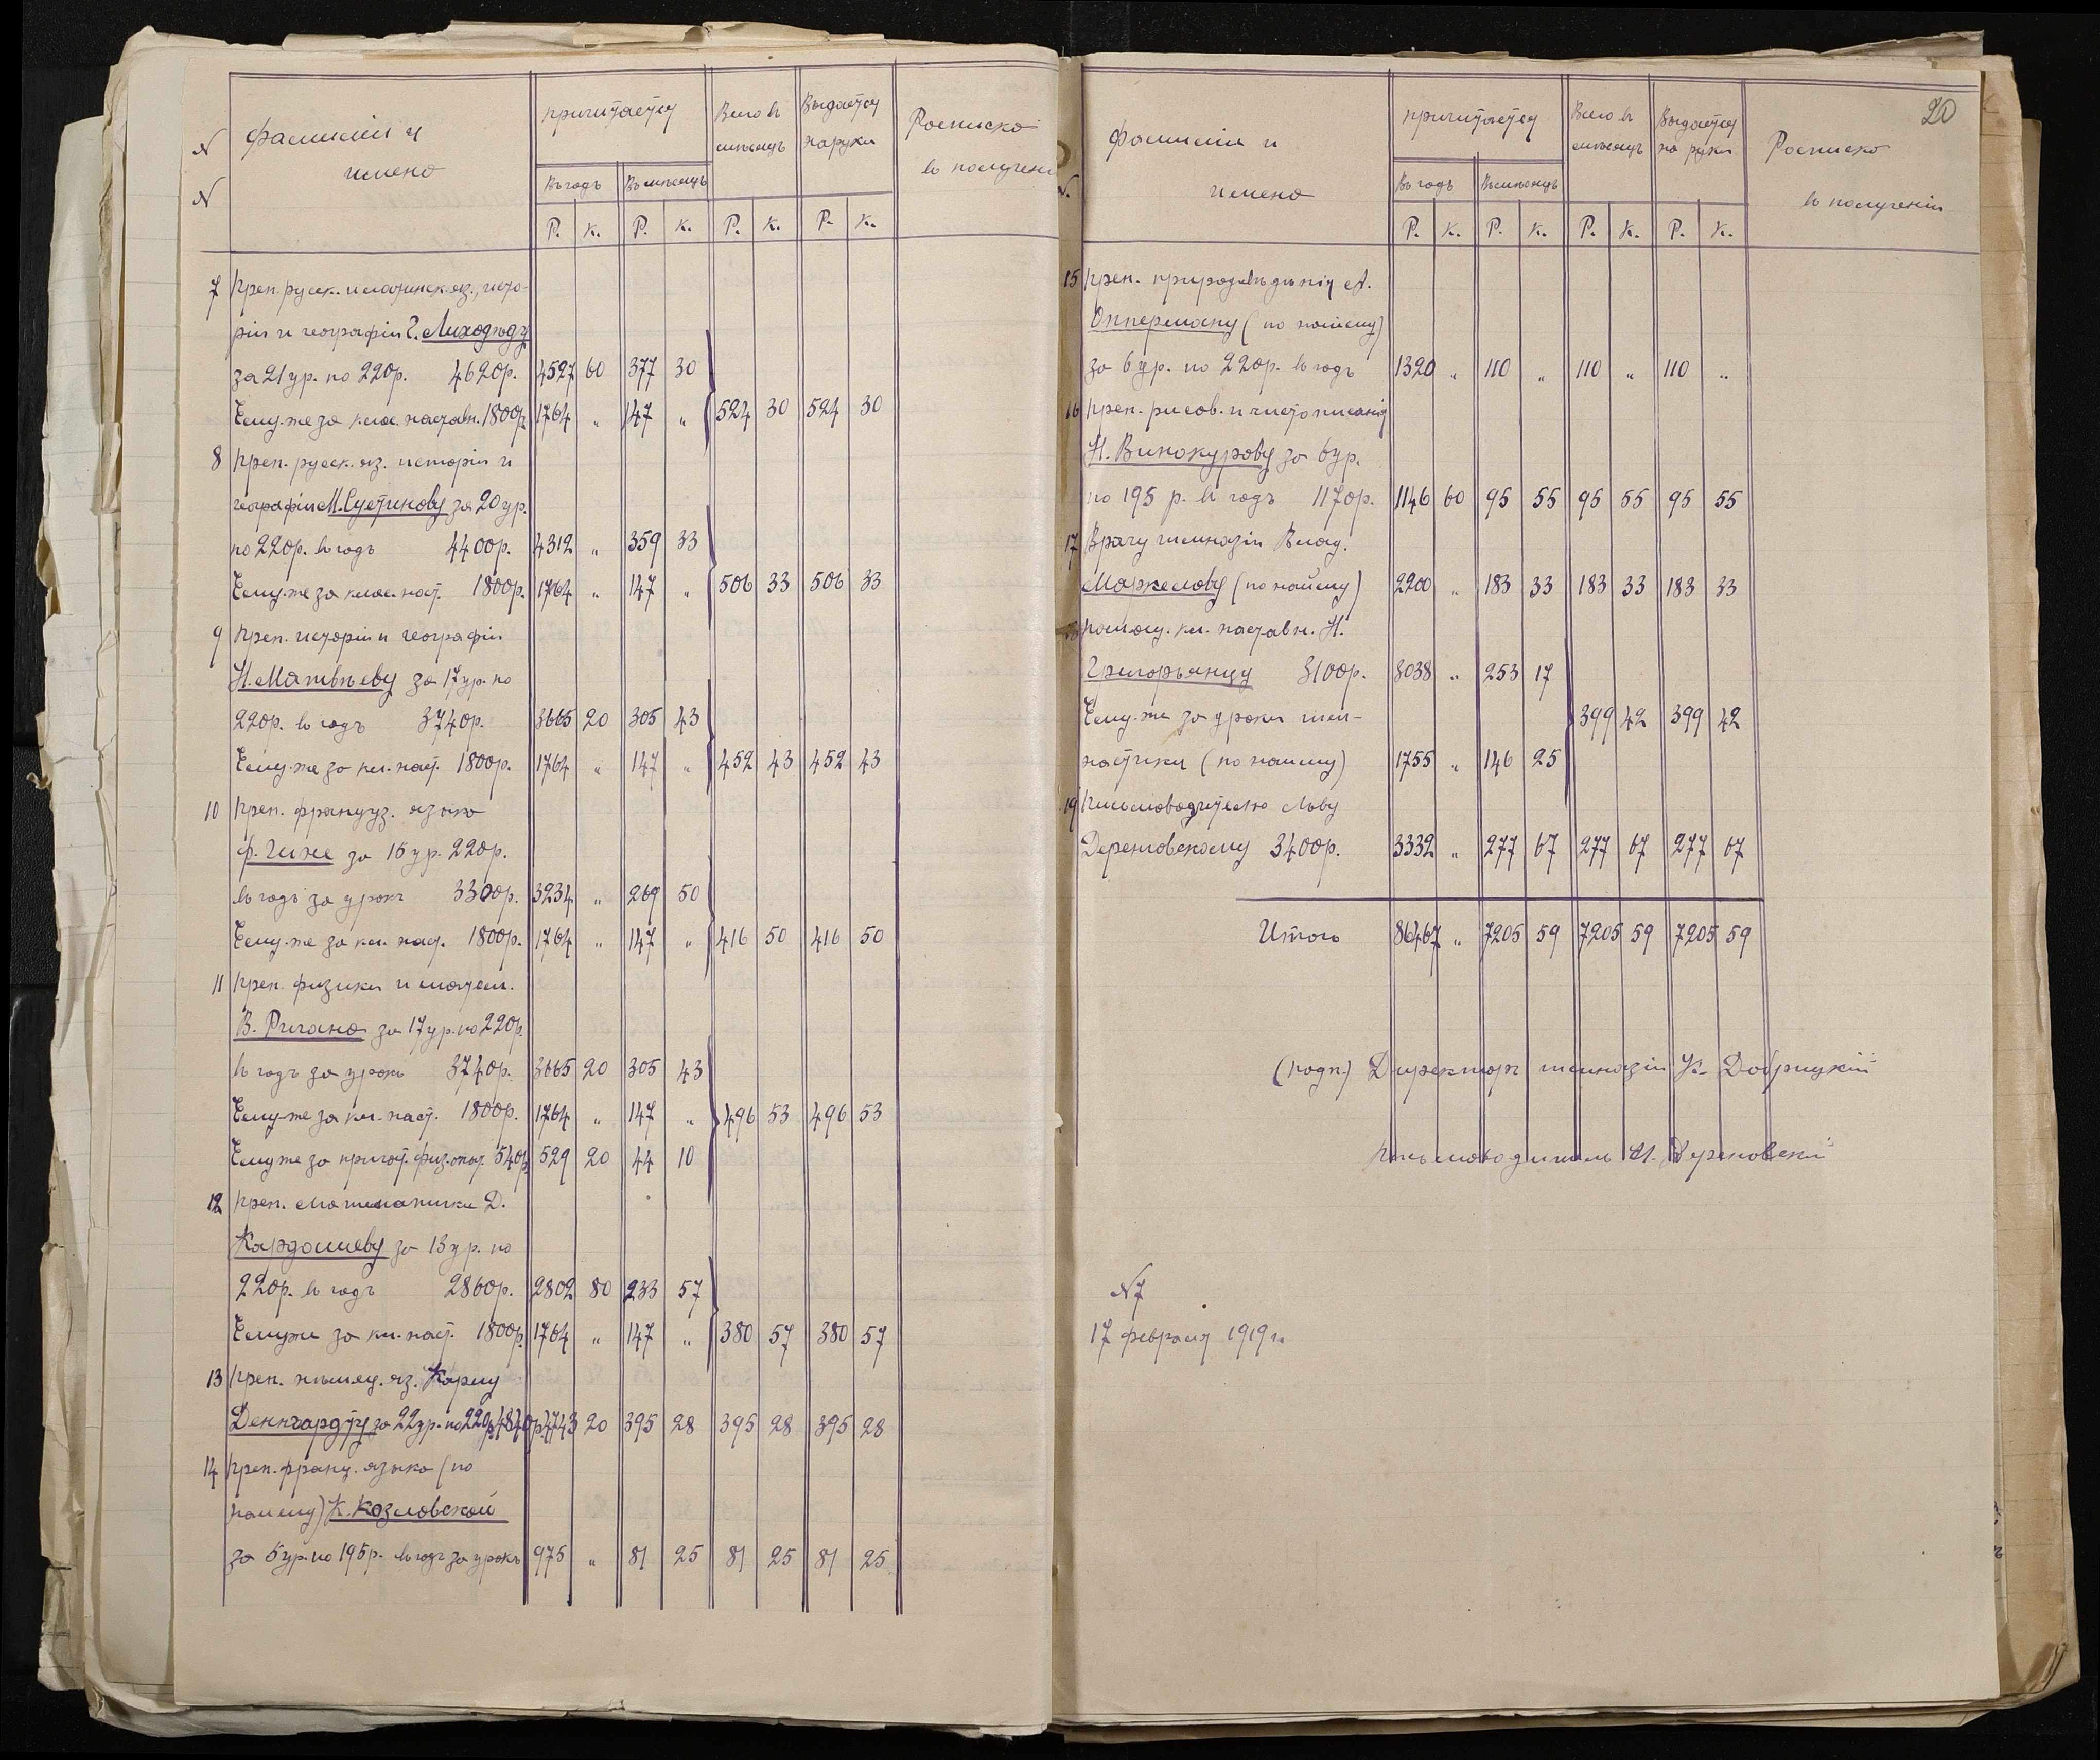 N N Фамилiи и имена причитается Всего въ мѣсяцъ Выдается на руки Росписка въ получени
Въ годъ Въ мѣсяцъ
Р. К. Р. К. Р. К. Р. К.
7 Преп. русск. и латинск. яз., исто-
рiи и географiи Г. Лиходѣду
за 21 ур. по 220р. 4620р. 4527 60 377 30
Ему-же за клас. настав. 1800р. 1764 " 147 " 524 30 524 30
8 Преп. русск. яз. исторiи и
географiи М. Суетинову за 20 ур.
по 220р. въ годъ 4400р. 4312 " 359 33
Ему-же за клас. наст. 1800р. 1764 " 147 " 506 33 506 33
9 Преп. исторiи и географiи
Н. Матвѣеву за 17 ур. по
220р. въ годъ 3740р. 3665 20 305 43
Ему-же за кл. наст. 1800р. 1764 " 147 " 452 43 452 43
10 Преп. француз. языка
Ф. Гиже за 15 ур. 220р.
въ годъ за урокъ 3300р. 3234 " 269 50
Ему-же за кл. наст. 1800р. 1764 " 147 " 416 50 416 50
11 Преп. физики и матем.
В. Ричана за 17 ур. по 220р.
въ годъ за урокъ 3740р. 3665 20 305 43
Ему-же за кл. наст. 1800р. 1764 " 147 " 496 53 496 53
Ему же за пригот. физ. опыт. 540р. 529 20 44 10
12 Преп. математики Д.
Кардашеву за 13 ур. по
220р. въ годъ 2860р. 2802 80 233 57
Ему же за кл. наст. 1800р. 1764 " 147 " 380 57 380 57
13 Преп. нѣмец. яз. Карлу
Деннгардту за 22 ур. по 220р. 4840р. 4743 20 395 28 395 28 395 28
14 Преп. франц. языка (по
найму) К. Козловской
за 5 ур. по 195р. въ годъ за урокъ 975 " 81 25 81 25 81 25
20
N. Фамилiи и имена причитается Всего въ мѣсяцъ Выдается на руки Росписка въ полученiи
Въ годъ Въ мѣсяцъ
Р. К. Р. К. Р. К. Р. К.
15 Преп. природовѣдѣнiя А.
Опперману (по найму)
за 6 ур. по 220р. въ годъ 1320 " 110 " 110 " 110 "
16 Преп. рисов. и чистописанiя
Н. Винокурову за 6 ур.
по 195 р. въ годъ 1170р. 1146 60 95 55 95 55 95 55
17 Врачу гимназiи Влад.
Маркелову (по найму) 2200 " 183 33 183 33 183 33
18 Помощ. кл. наставн. Н.
Григорьянцу 3100р. 3038 " 253 17
Ему-же за уроки гим-
настики (по найму) 1755 " 146 25 399 42 399 42
19 Письмоводителю Льву
Дереновскому 3400р. 3332 " 277 67 277 67 277 67
Итого 86467 " 7205 59 7205 59 7205 59
(подп.) Директоръ гимназiи К. Добрицкiй
Письмоводитель Л. Дереновскiй
N7
17 февраля 1919 г.